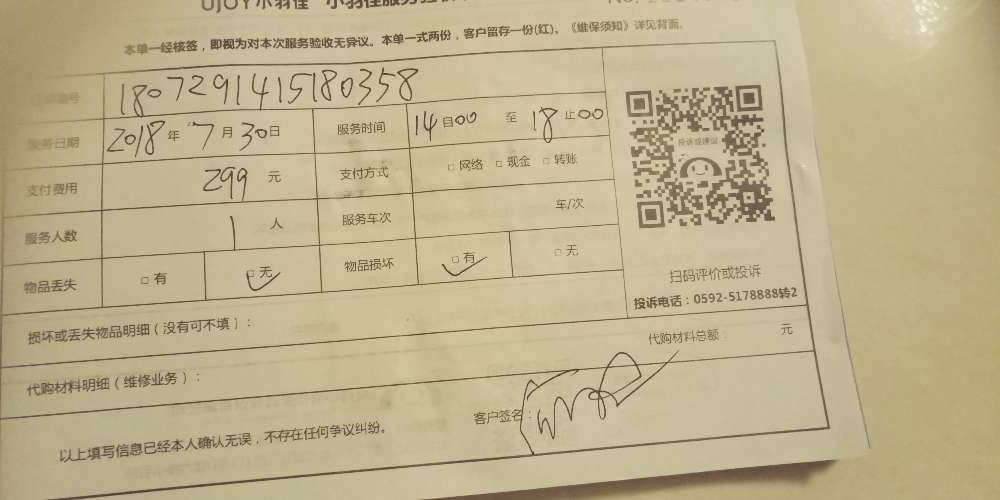 UJOY小羽佳 小羽佳服务验收
NO.
本单一经核签，即视为对本次服务验收无异议。本单一式两份，客户留存一份(红)。《维保须知》详见背面。
编号 1807291415180358
服务日期 2018年 7月30日 服务时间 14自00 至 18止00
支付费用 299 元 支付方式 □网络 □现金 □转账
服务人数 1 人 服务车次 车/次
物品丢失 □有 □无 物品损坏 □有 □无
投诉或建议
扫码评价或投诉
投诉电话：0592-5178888转2
损坏或丢失物品明细（没有可不填）：
代购材料明细（维修业务）： 代购材料总额： 元
以上填写信息已经本人确认无误，不存在任何争议纠纷。 客户签名：